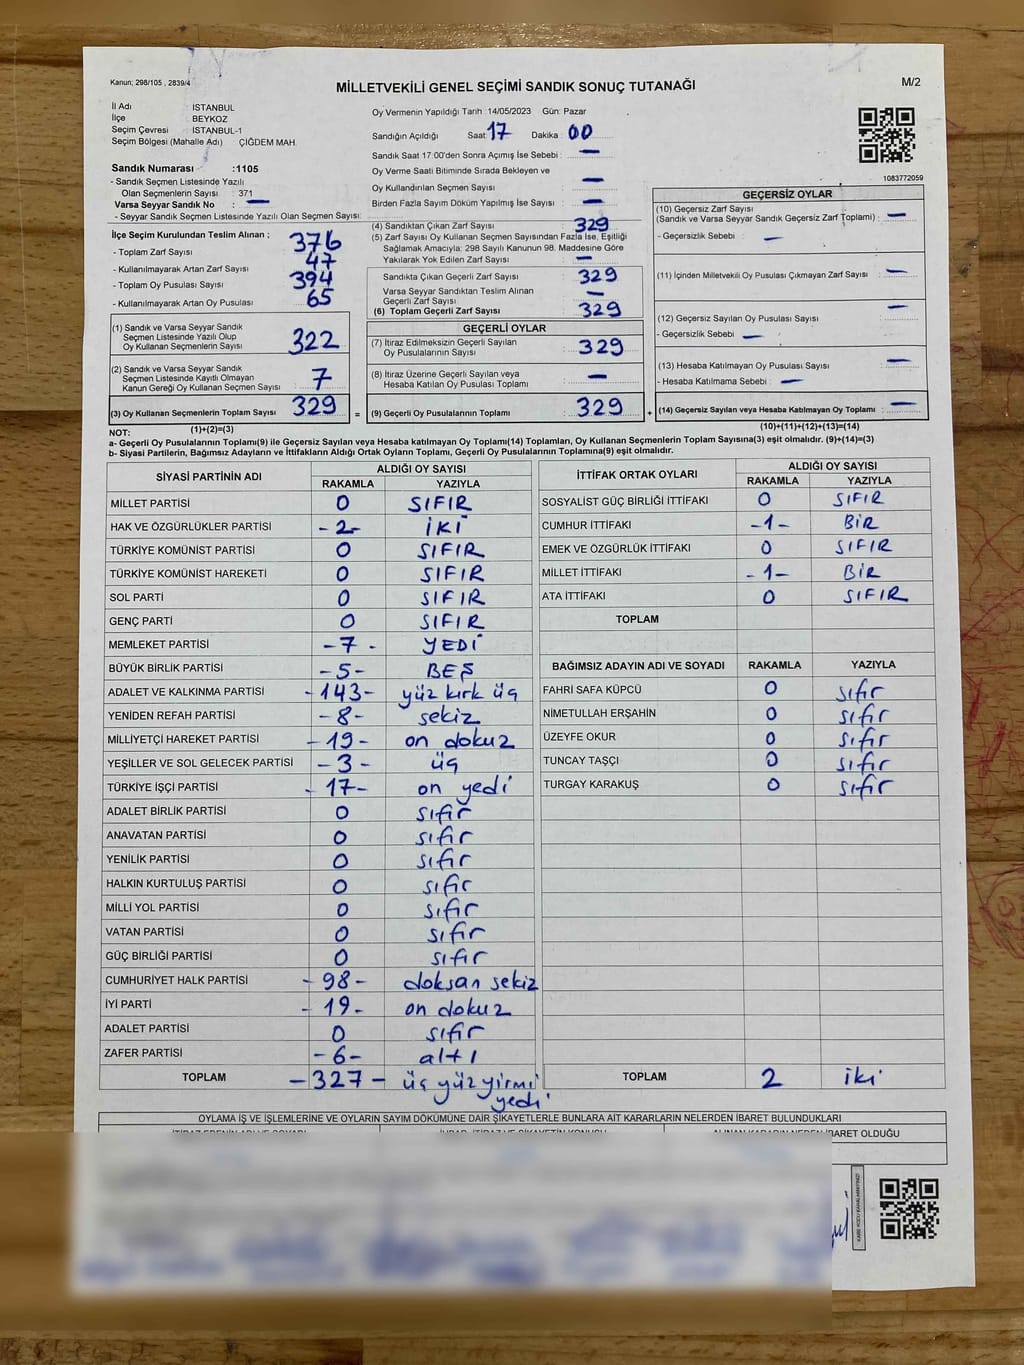 Kanun; 298/105 , 2839/4
MİLLETVEKİLİ GENEL SEÇİMİ SANDIK SONUÇ TUTANAĞI
M/2
İl Adı : İSTANBUL
İlçe : BEYKOZ
Seçim Çevresi : İSTANBUL-1
Seçim Bölgesi (Mahalle Adı) : ÇİĞDEM MAH.
Sandık Numarası :1105
- Sandık Seçmen Listesinde Yazılı
Olan Seçmenlerin Sayısı : 371
Varsa Seyyar Sandık No : —
- Seyyar Sandık Seçmen Listesinde Yazılı Olan Seçmen Sayısı:
Oy Vermenin Yapıldığı Tarih :14/05/2023 Gün: Pazar
Sandığın Açıldığı Saat: 17 Dakika : 00
Sandık Saat 17:00'den Sonra Açımış İse Sebebi : —
Oy Verme Saati Bitiminde Sırada Bekleyen ve
Oy Kullandırılan Seçmen Sayısı : —
Birden Fazla Sayım Döküm Yapılmış İse Sayısı : —
1083772059
İlçe Seçim Kurulundan Teslim Alınan ;
- Toplam Zarf Sayısı : 376
- Kullanılmayarak Artan Zarf Sayısı : 47
- Toplam Oy Pusulası Sayısı : 394
- Kullanılmayarak Artan Oy Pusulası : 65
(1) Sandık ve Varsa Seyyar Sandık
Seçmen Listesinde Yazılı Olup
Oy Kullanan Seçmenlerin Sayısı : 322
(2) Sandık ve Varsa Seyyar Sandık
Seçmen Listesinde Kayıtlı Olmayan
Kanun Gereği Oy Kullanan Seçmen Sayısı : 7
(3) Oy Kullanan Seçmenlerin Toplam Sayısı : 329
(1)+(2)=(3)
(4) Sandıktan Çıkan Zarf Sayısı : 329
(5) Zarf Sayısı Oy Kullanan Seçmen Sayısından Fazla İse, Eşitliği
Sağlamak Amacıyla: 298 Sayılı Kanunun 98. Maddesine Göre
Yakılarak Yok Edilen Zarf Sayısı : —
Sandıkta Çıkan Geçerli Zarf Sayısı : 329
Varsa Seyyar Sandıktan Teslim Alınan
Geçerli Zarf Sayısı : —
(6) Toplam Geçerli Zarf Sayısı : 329
GEÇERLİ OYLAR
(7) İtiraz Edilmeksizin Geçerli Sayılan
Oy Pusulalarının Sayısı : 329
(8) İtiraz Üzerine Geçerli Sayılan veya
Hesaba Katılan Oy Pusulası Toplamı : —
= (9) Geçerli Oy Pusulalarının Toplamı : 329
GEÇERSİZ OYLAR
(10) Geçersiz Zarf Sayısı
(Sandık ve Varsa Seyyar Sandık Geçersiz Zarf Toplamı) : —
- Geçersizlik Sebebi : —
(11) İçinden Milletvekili Oy Pusulası Çıkmayan Zarf Sayısı : —
(12) Geçersiz Sayılan Oy Pusulası Sayısı : —
- Geçersizlik Sebebi : —
(13) Hesaba Katılmayan Oy Pusulası Sayısı : —
- Hesaba Katılmama Sebebi : —
+ (14) Geçersiz Sayılan veya Hesaba Katılmayan Oy Toplamı : —
(10)+(11)+(12)+(13)=(14)
NOT:
a- Geçerli Oy Pusulalarının Toplamı(9) ile Geçersiz Sayılan veya Hesaba katılmayan Oy Toplamı(14) Toplamları, Oy Kullanan Seçmenlerin Toplam Sayısına(3) eşit olmalıdır. (9)+(14)=(3)
b- Siyasi Partilerin, Bağımsız Adayların ve İttifakların Aldığı Ortak Oyların Toplamı, Geçerli Oy Pusulalarının Toplamına(9) eşit olmalıdır.
SİYASİ PARTİNİN ADI
ALDIĞI OY SAYISI
RAKAMLA YAZIYLA
MİLLET PARTİSİ 0 SIFIR
HAK VE ÖZGÜRLÜKLER PARTİSİ -2- İKİ
TÜRKİYE KOMÜNİST PARTİSİ 0 SIFIR
TÜRKİYE KOMÜNİST HAREKETİ 0 SIFIR
SOL PARTİ 0 SIFIR
GENÇ PARTİ 0 SIFIR
MEMLEKET PARTİSİ -7- YEDİ
BÜYÜK BİRLİK PARTİSİ -5- BEŞ
ADALET VE KALKINMA PARTİSİ -143- yüz kırk üç
YENİDEN REFAH PARTİSİ -8- sekiz
MİLLİYETÇİ HAREKET PARTİSİ -19- on dokuz
YEŞİLLER VE SOL GELECEK PARTİSİ -3- üç
TÜRKİYE İŞÇİ PARTİSİ -17- on yedi
ADALET BİRLİK PARTİSİ 0 sıfır
ANAVATAN PARTİSİ 0 sıfır
YENİLİK PARTİSİ 0 sıfır
HALKIN KURTULUŞ PARTİSİ 0 sıfır
MİLLİ YOL PARTİSİ 0 sıfır
VATAN PARTİSİ 0 sıfır
GÜÇ BİRLİĞİ PARTİSİ 0 sıfır
CUMHURİYET HALK PARTİSİ -98- doksan sekiz
İYİ PARTİ -19- on dokuz
ADALET PARTİSİ 0 sıfır
ZAFER PARTİSİ -6- altı
TOPLAM -327- üç yüz yirmi
yedi
İTTİFAK ORTAK OYLARI
ALDIĞI OY SAYISI
RAKAMLA YAZIYLA
SOSYALİST GÜÇ BİRLİĞİ İTTİFAKI 0 SIFIR
CUMHUR İTTİFAKI -1- BİR
EMEK VE ÖZGÜRLÜK İTTİFAKI 0 SIFIR
MİLLET İTTİFAKI -1- BİR
ATA İTTİFAKI 0 SIFIR
TOPLAM
BAĞIMSIZ ADAYIN ADI VE SOYADI RAKAMLA YAZIYLA
FAHRİ SAFA KÜPCÜ 0 sıfır
NİMETULLAH ERŞAHİN 0 sıfır
ÜZEYFE OKUR 0 sıfır
TUNCAY TAŞÇI 0 sıfır
TURGAY KARAKUŞ 0 sıfır
TOPLAM 2 iki
OYLAMA İŞ VE İŞLEMLERİNE VE OYLARIN SAYIM DÖKÜMÜNE DAİR ŞİKAYETLERLE BUNLARA AİT KARARLARIN NELERDEN İBARET BULUNDUKLARI
İBARET OLDUĞU